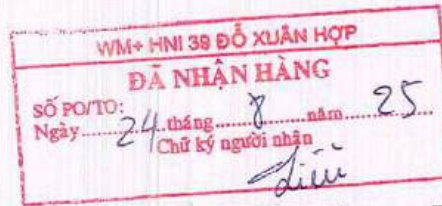 WM+ HNI 39 ĐỖ XUÂN HỢP
ĐÃ NHẬN HÀNG
SỐ PO/TO:
Ngày 24 tháng 8 năm 25
Chữ ký người nhận